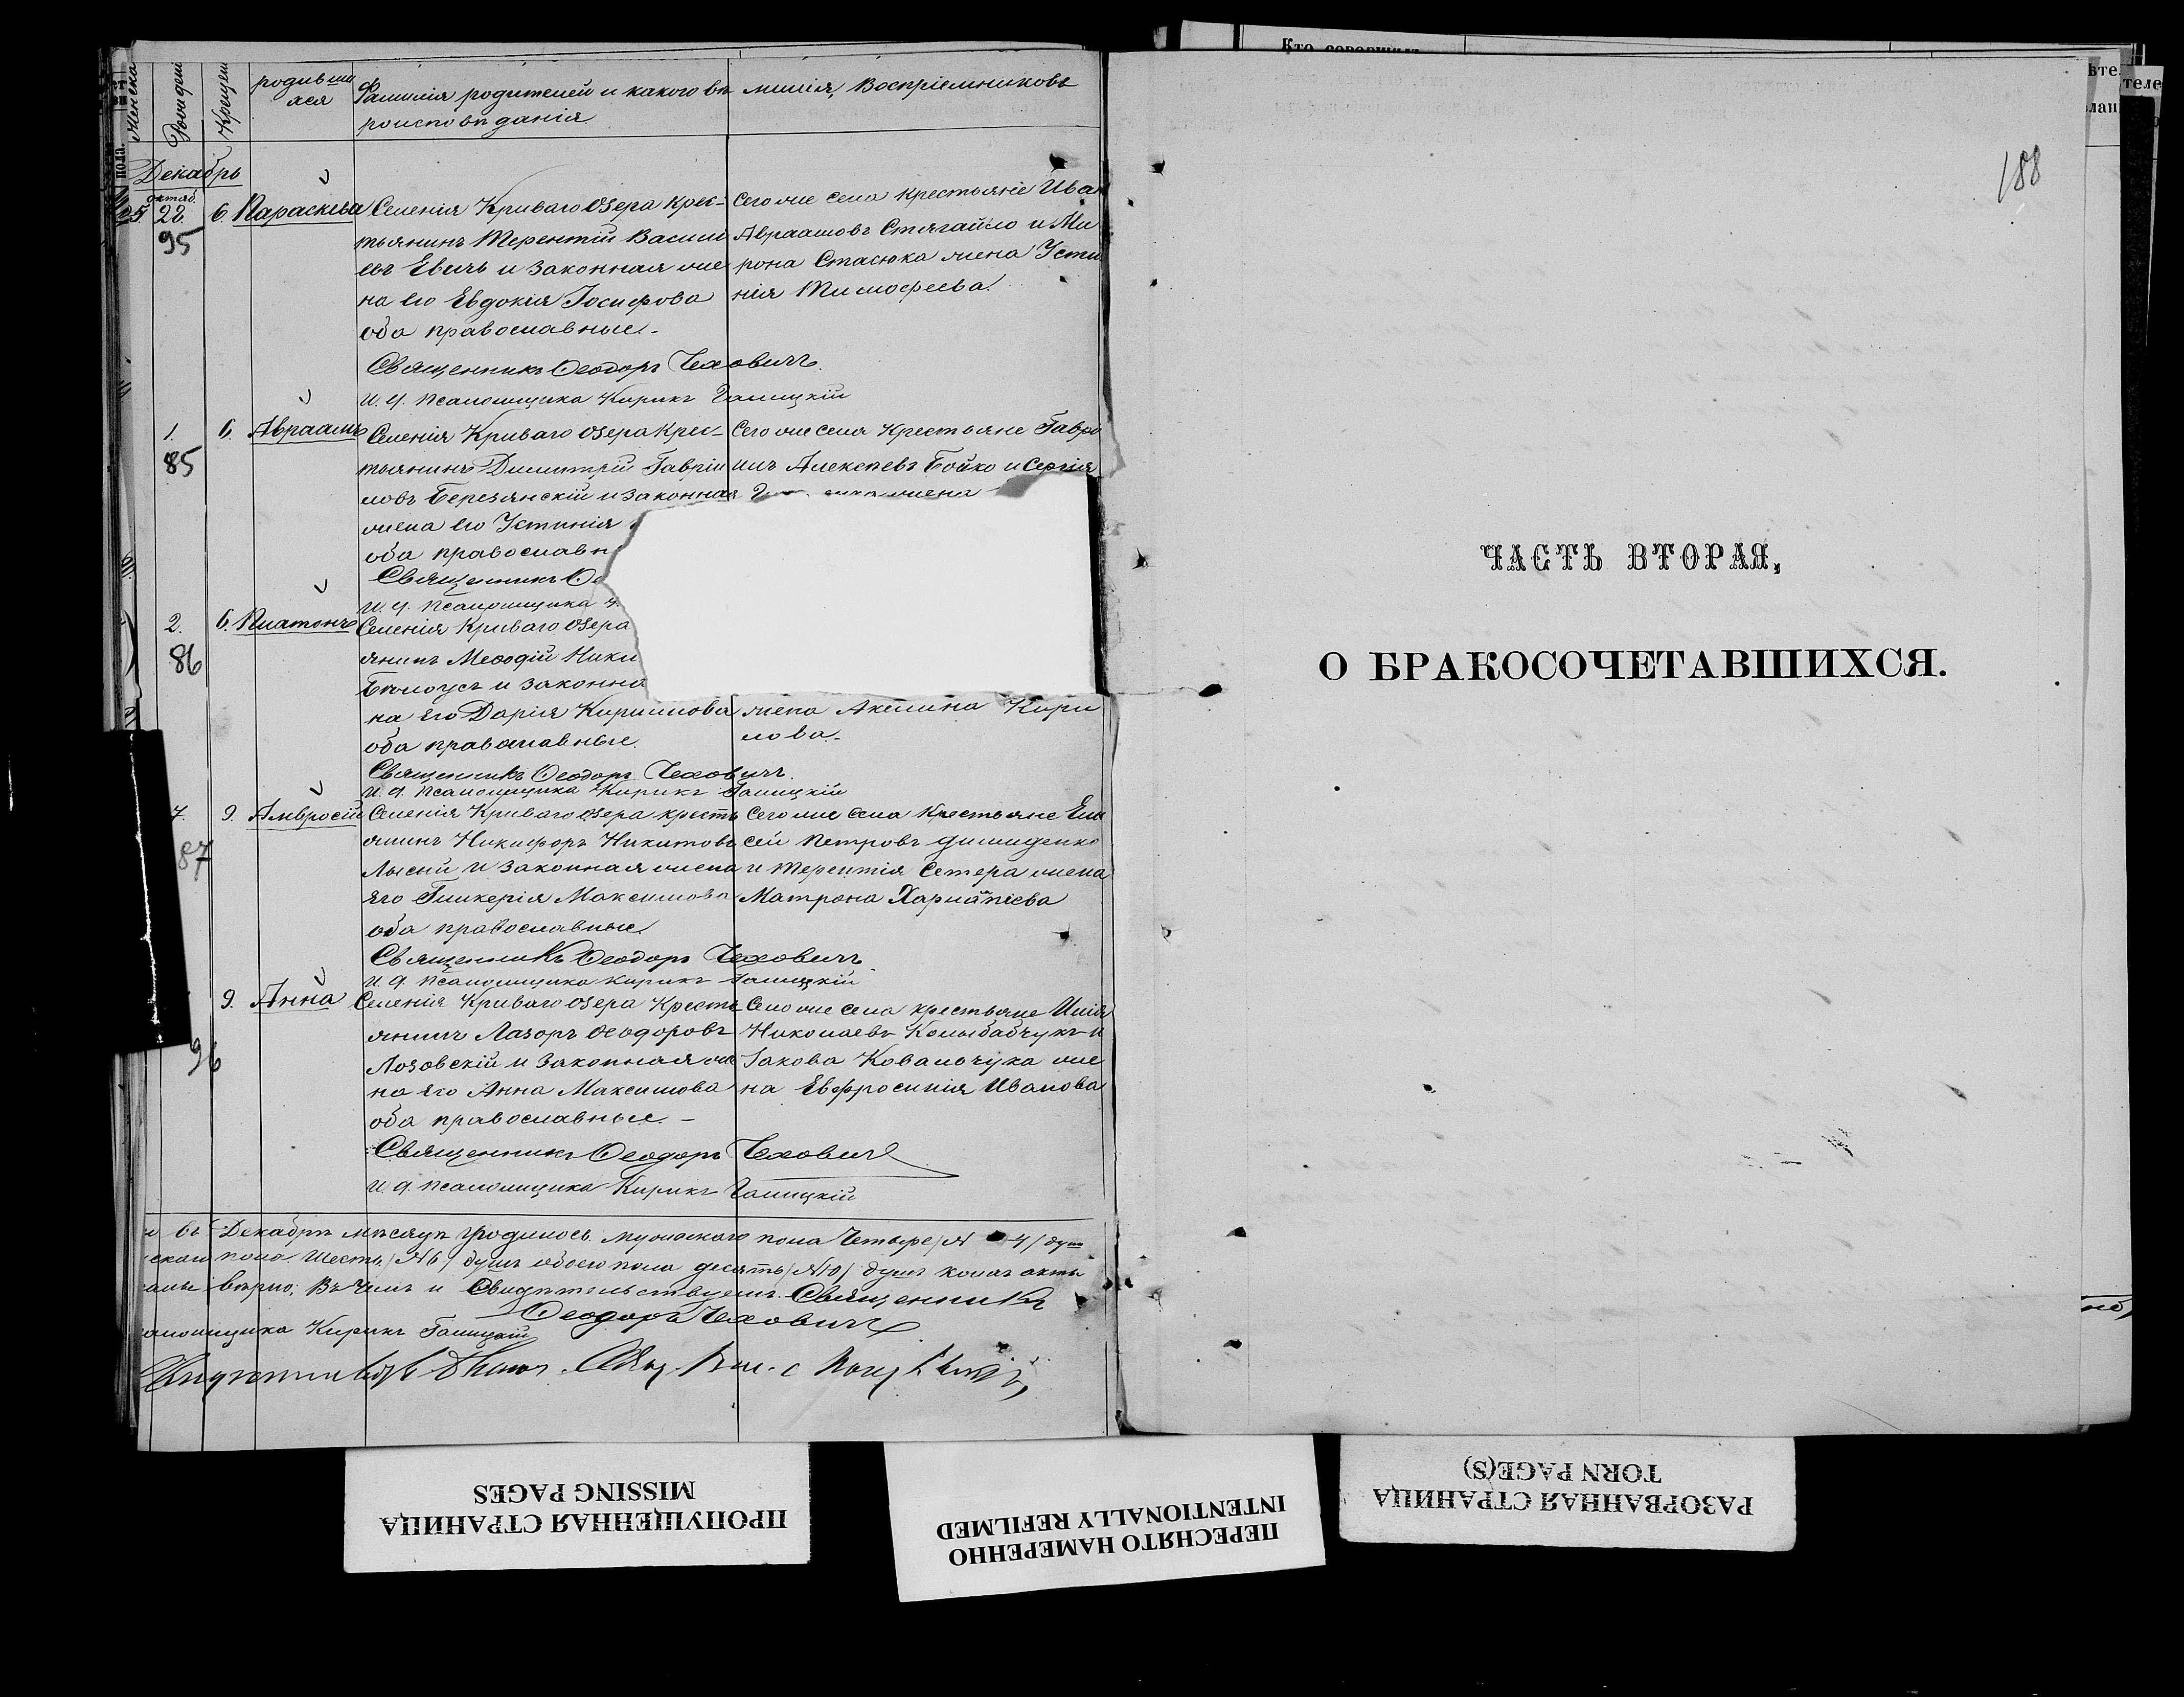 родивши
хся
Фамилія родителей и какого вѣ
роисповѣданія
милія, Воспріемниковъ
Женска
Рожден
Крещен
пола.
Декабрь
октяб.
25 28. 6. Параскева
95
Селенія Криваго Озера крес-
тьянинъ Терентій Василі
евъ Евичъ и законная же
на его Евдокія Іосифова
оба православные.
Сего же села крестьяне Иван
Авраамовъ Стягайло и Ми
рона Стасюка жена Усти
нія Тимофеева.
Священникъ Ѳеодоръ Чеховичъ.
И. д. псаломщика Кирикъ Галицкій
1. 6. Авраамъ
85
Селенія Криваго Озера Крес-
тьянинъ Димитрій Гавріи
ловъ Березянскій и законная
жена его Устинія
оба православн
Сего же села Крестьяне Гавро
илъ Алексѣевъ Бойко и Сергія
жена
Священникъ Ѳе
И. д. псаломщика
2. 6. Платонъ
86
Селенія Криваго Озера
янинъ Меѳодій Ники
Бѣлоусъ и законна
на его Дарія Кирилова
оба православные.
жена Акилина Кири
лова.
Священникъ Ѳеодоръ Чеховичъ.
И. д. псаломщика Кирикъ Галицкій
7. 9. Амвросій
87
Селенія Криваго Озера кресть
янинъ Никифоръ Никитовъ
Лысый и законная жена
его Гликерія Максимова
оба православные.
Сего же села Крестьяне Ели
сей Петровъ
и Терентія Сетера жена
Матрона
Священникъ Ѳеодоръ Чеховичъ.
И. д. псаломщика Кирикъ Галицкій
9. Анна
96
Селенія Криваго Озера Кресть
янинъ Лазоръ Ѳеодоровъ
Лозовскій и законная же
на его Анна Максимова
оба православные. –
Сего же села крестьяне Илія
Николаевъ Колыбабчукъ и
Іакова Ковальчука же
на Евфросинія Иванова
Священникъ Ѳеодоръ Чеховичъ
И. д. псаломщика Кирикъ Галицкій
въ Декабрѣ мѣсяцѣ родилось мужскаго пола Четыре /№ 4/ душ
скаго пола Шесть /№ 6/ душъ обоего пола десять /№ 10/ душъ коихъ акты
вѣрно; Въ чемъ и Свидѣтельствуемъ. Священникъ
Ѳеодоръ Чеховичъ
аломщика Кирикъ Галицкій
188
ЧАСТЬ ВТОРАЯ,
О БРАКОСОЧЕТАВШИХСЯ.
Кто совершил
ѣте
лан
теле
ПРОПУЩЕННАЯ СТРАНИЦА
MISSING PAGES
ПЕРЕСНЯТО НАМЕРЕННО
INTENTIONALLY REFILMED
РАЗОРВАННАЯ СТРАНИЦА
TORN PAGE(S)